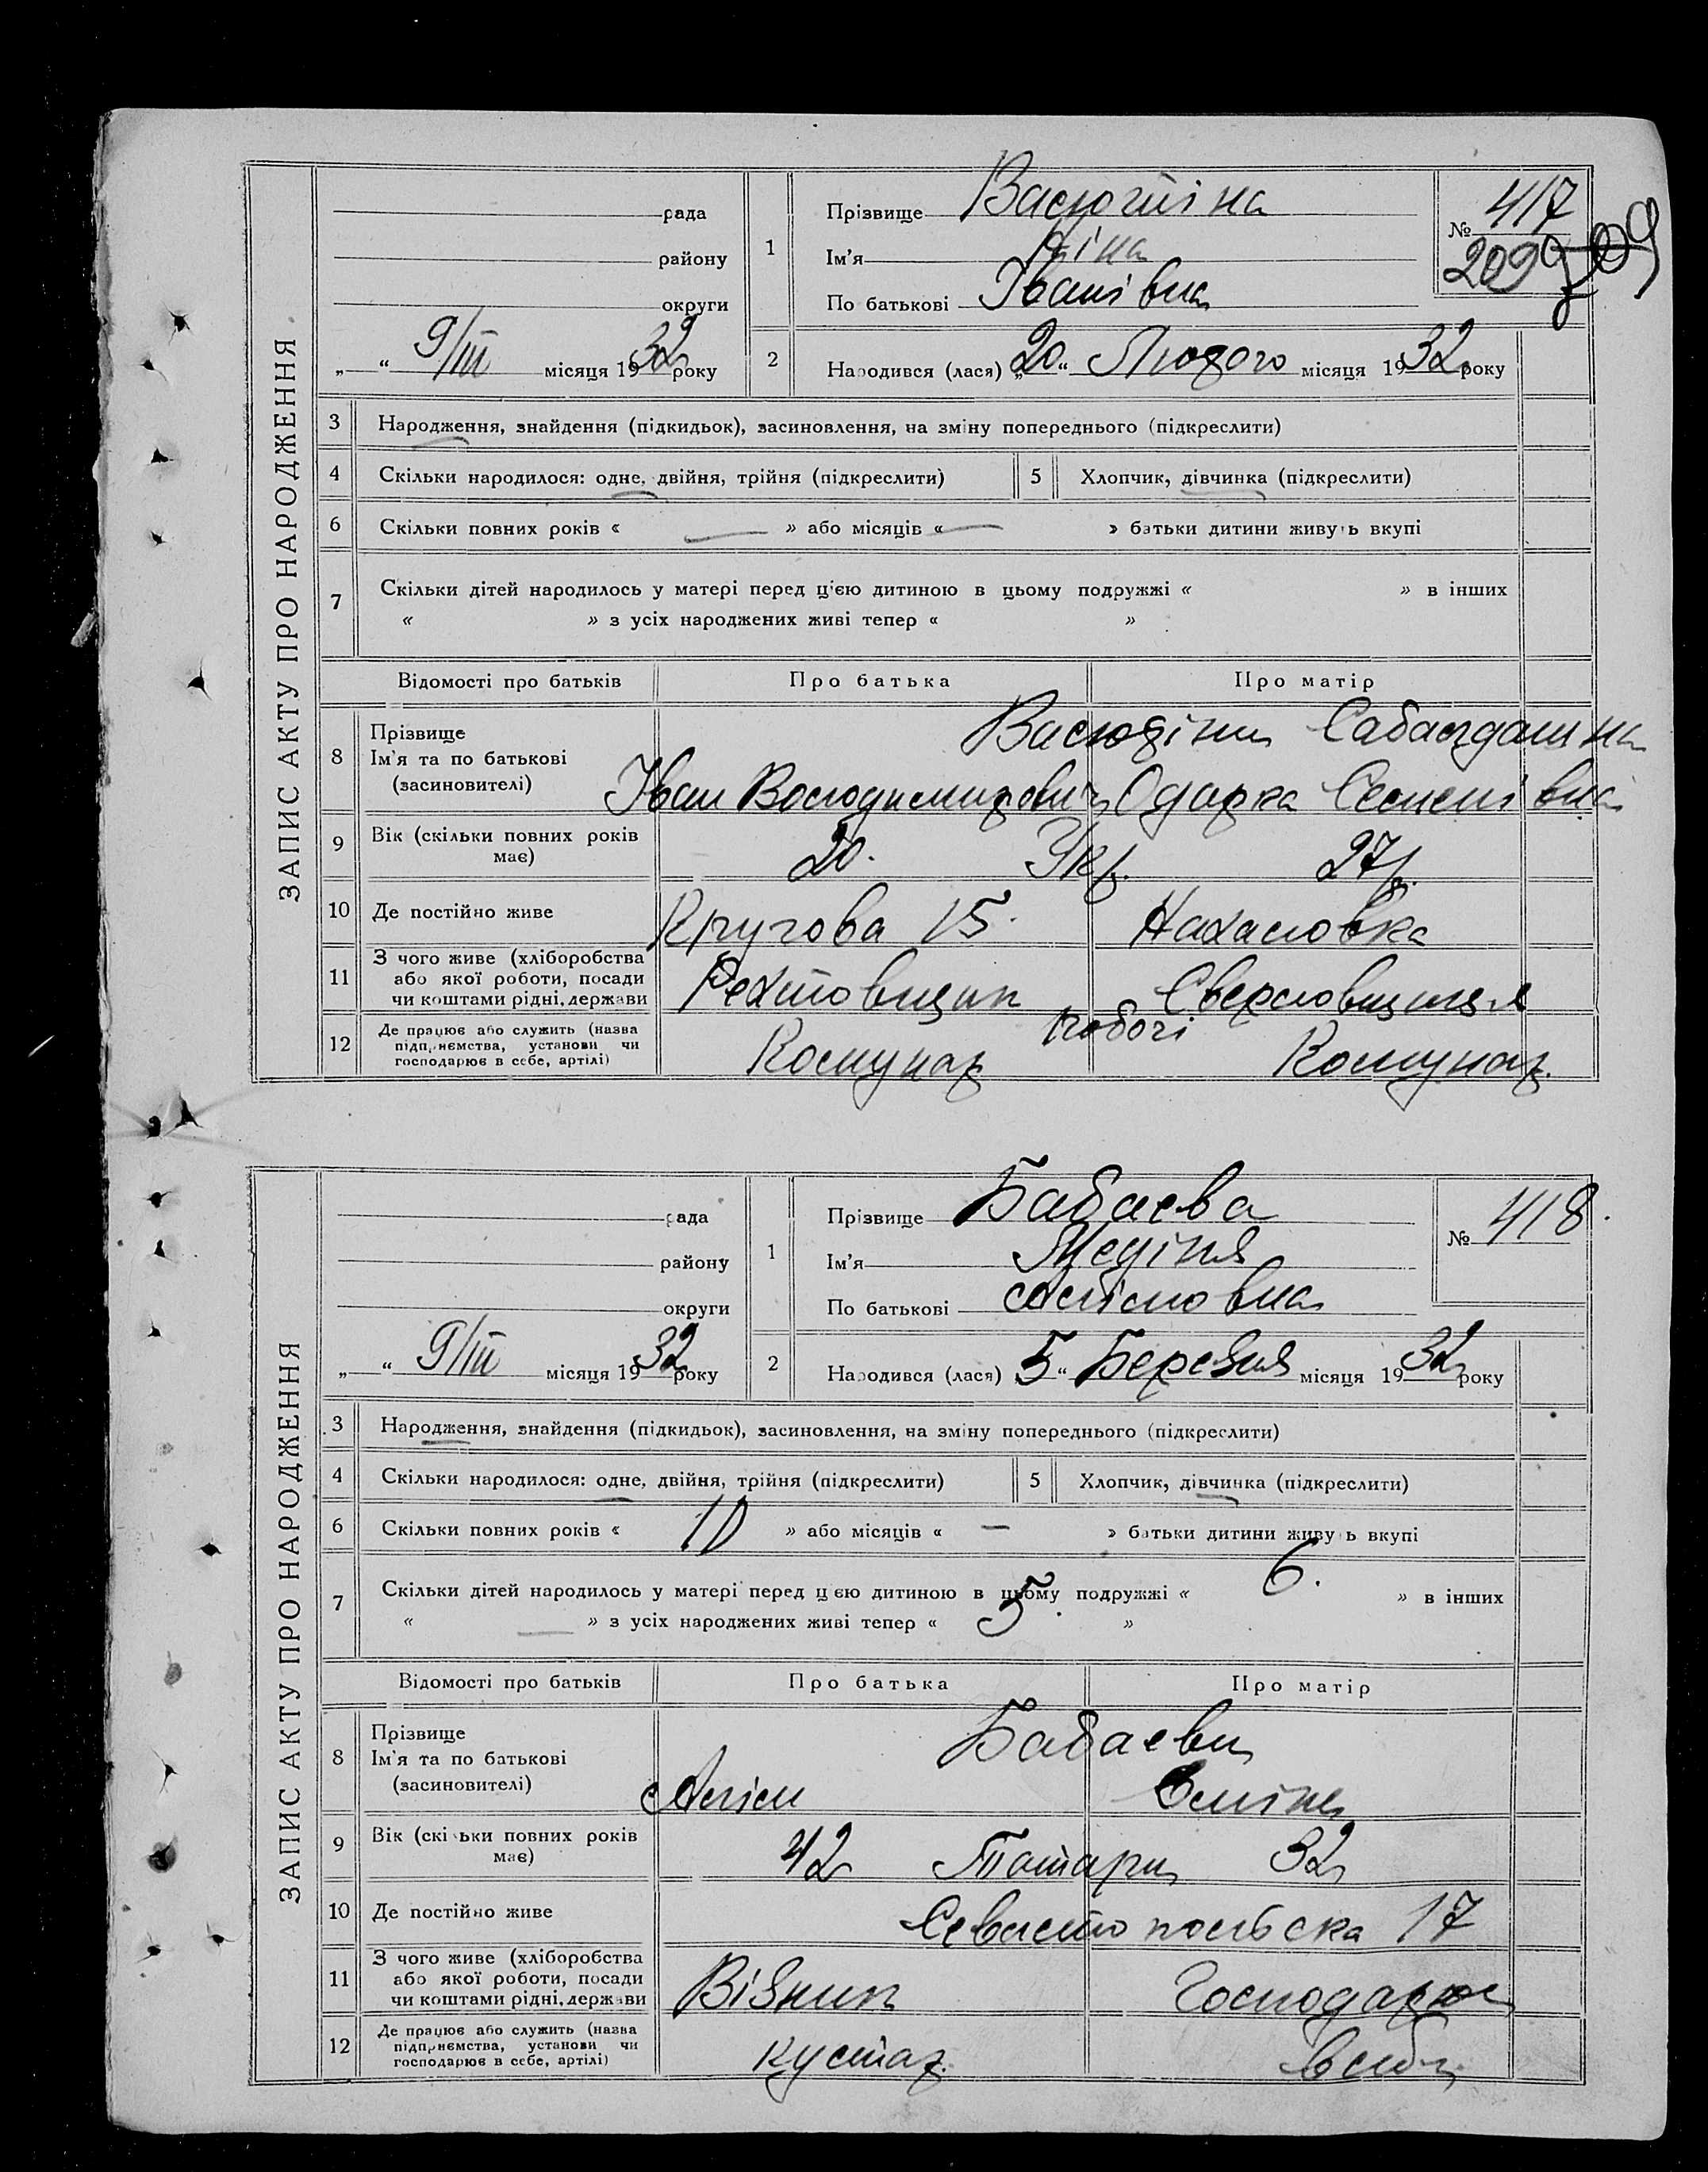 ЗАПИС АКТУ ПРО НАРОДЖЕННЯ
рада
району
округи
„ “ 9/III місяця 1932 року
1
Прізвище Васютіна
Ім'я Ніна
По батькові Іванівна
№ 417
2099
709
2
Народився (лася) „20“ Лютого місяця 1932 року
3 Народження, знайдення (підкидьок), засиновлення, на зміну попереднього (підкреслити)
4 Скільки народилося: одне, двійня, трійня (підкреслити)
5 Хлопчик, дівчинка (підкреслити)
6 Скільки повних років « — » або місяців « — » батьки дитини живуть вкупі
7 Скільки дітей народилось у матері перед ц'єю дитиною в цьому подружжі « » в інших
« » з усіх народжених живі тепер « »
Відомості про батьків Про батька Про матір
8 Прізвище
Ім'я та по батькові
(засиновителі)
Васюдіни
Іван Володимирович Одарка Семенівна
9 Вік (скільки повних років має)
20. Укр. 27р.
10 Де постійно живе
Кругова 15. Нахаловка
11 З чого живе (хліборобства або якої роботи, посади чи коштами рідні, держави
12 Де працює або служить (назва підприємства, установи чи господарює в себе, артілі)
робочі
Комунар Комунар.
ЗАПИС АКТУ ПРО НАРОДЖЕННЯ
рада
району
округи
„ “ 9/III місяця 1932 року
1
Прізвище Бабаєва
Ім'я Медіня
По батькові Алімовна
№ 418.
2
Народився (лася) 5“ Березня місяця 1932 року
3 Народження, знайдення (підкидьок), засиновлення, на зміну попереднього (підкреслити)
4 Скільки народилося: одне, двійня, трійня (підкреслити)
5 Хлопчик, дівчинка (підкреслити)
6 Скільки повних років « 10 » або місяців « — » батьки дитини живуть вкупі
7 Скільки дітей народилось у матері перед цією дитиною в цьому подружжі « 6. » в інших
« — » з усіх народжених живі тепер « 5. »
Відомості про батьків Про батька Про матір
8 Прізвище
Ім'я та по батькові
(засиновителі)
Бабаєви
Алім Зміне
9 Вік (скільки повних років має)
42 Татари 32
10 Де постійно живе
Севастопольска 17
11 З чого живе (хліборобства або якої роботи, посади чи коштами рідні, держави
Візник Господарює
12 Де працює або служить (назва підприємства, установи чи господарює в себе, артілі)
кустар.